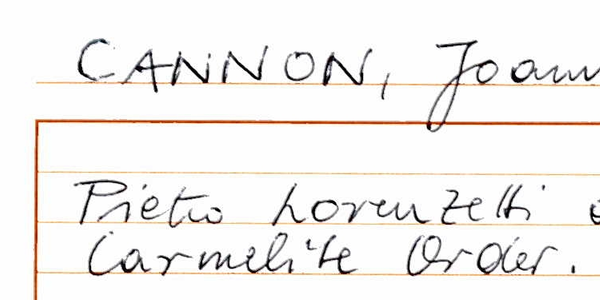 CANNON, Joann
Pietro Lorenzetti
Carmelite Order.